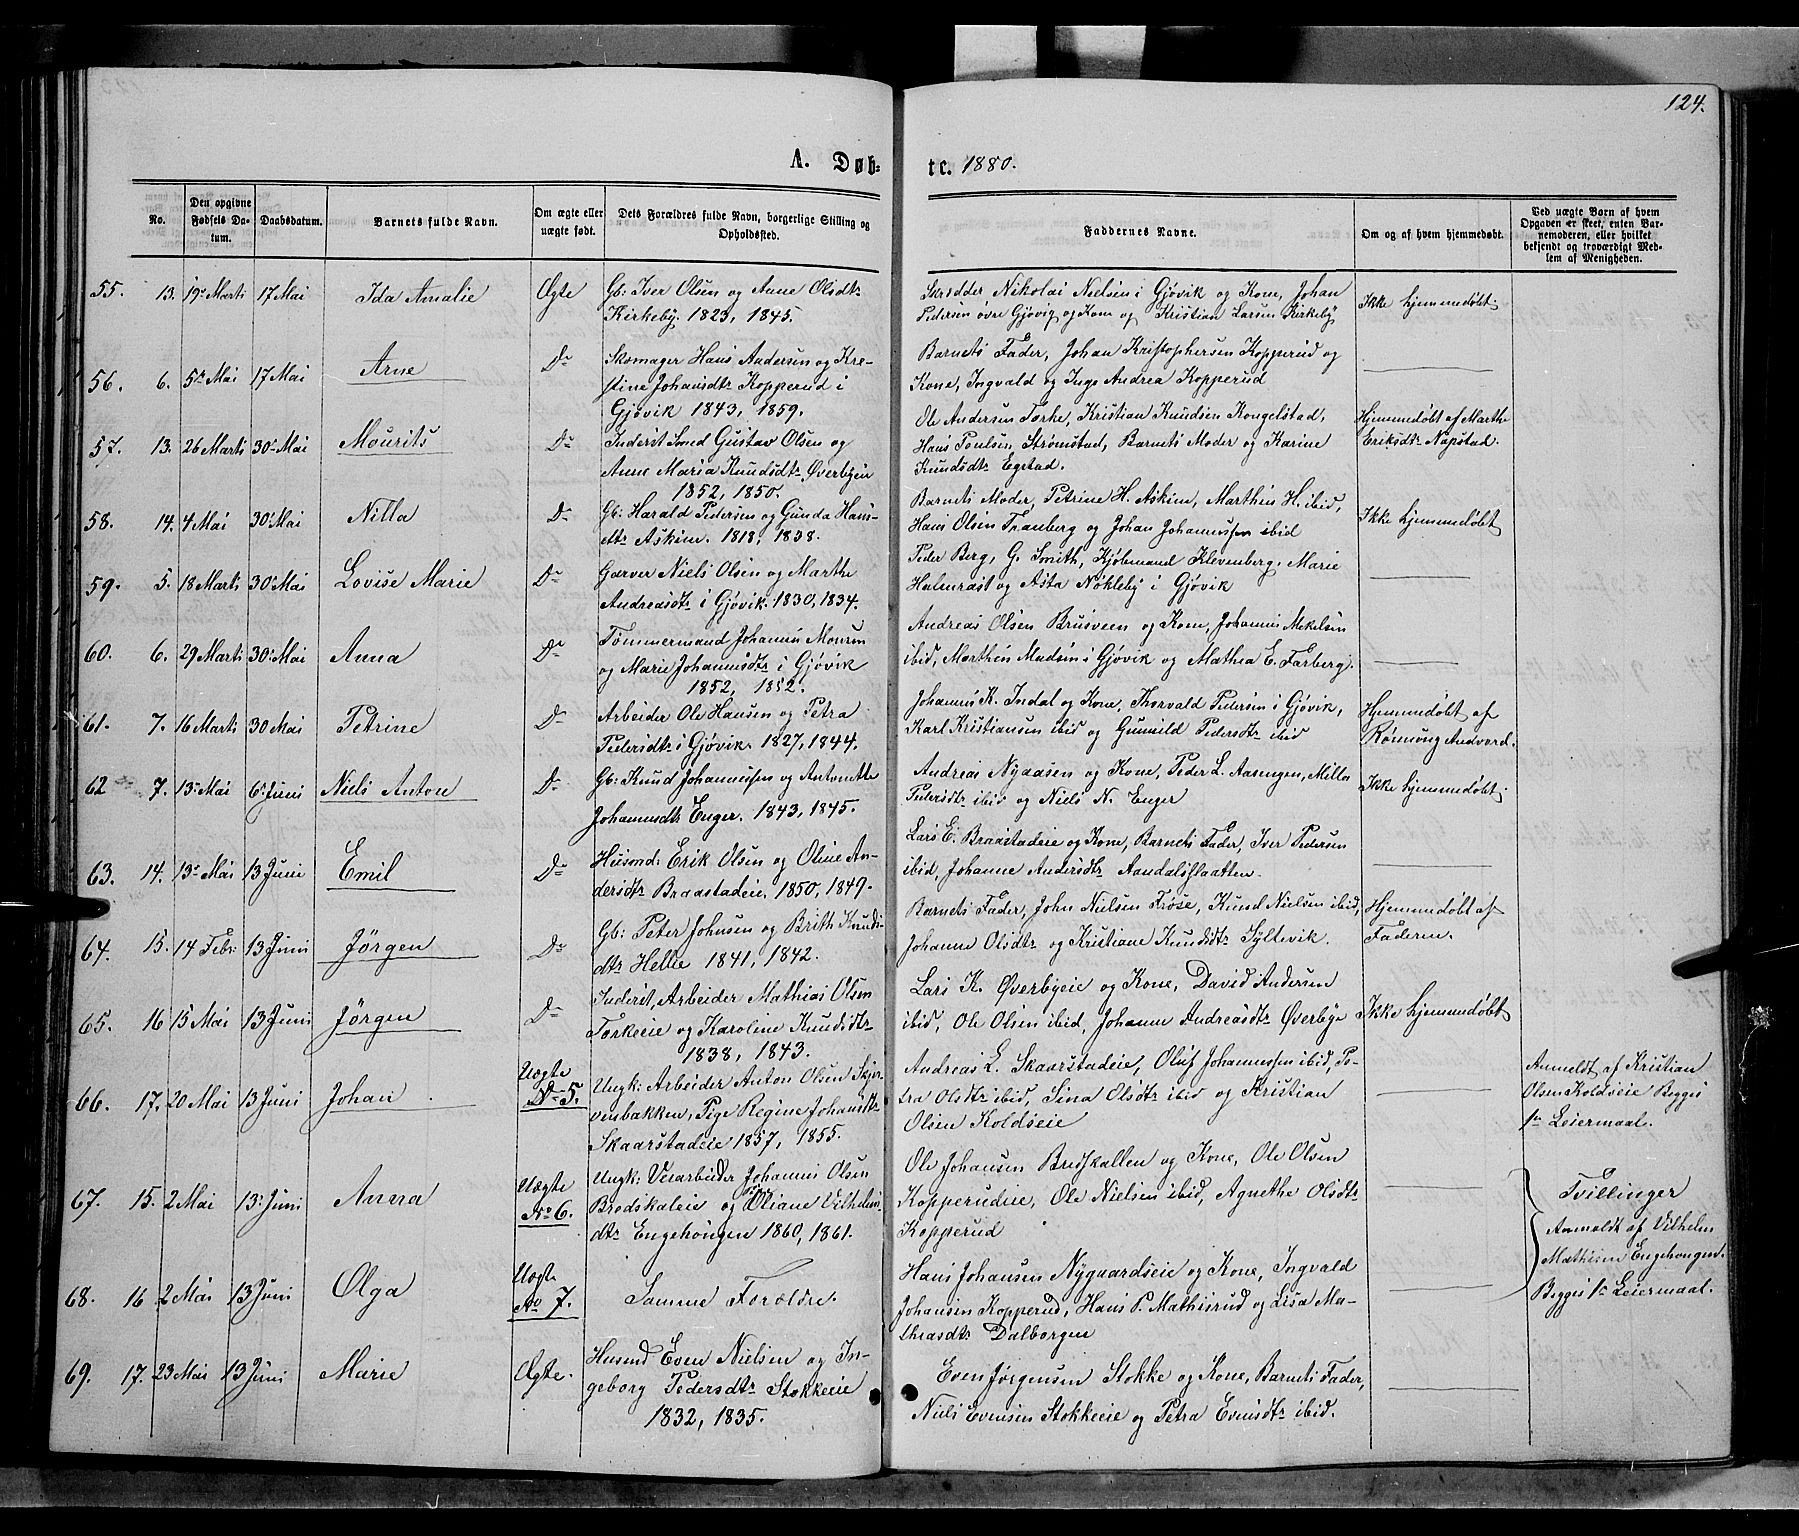 124.
A. Døb-
te. 1880.
No.
Den opgivne Fødsels Datum.
Daabsdatum.
Barnets fulde Navn.
Om ægte eller uægte født.
Dets Forældres fulde Navn, borgerlige Stilling og Opholdssted.
Faddernes Navne.
Om og af hvem hjemmedøbt.
Ved uægte Børn af hvem Opgaven er skeet, enten Barnemoderen, eller hvilket bekjendt og troværdigt Medlem af Menigheden.
55. 13. 19de Marts 17 Mai Ida Amalie Ægte
Gb: Iver Olsen og Anne Olsdtr
Kirkeby 1823, 1845.
Skrædder Nikolai Nielsen i Gjøvik og Kone, Johan
Pedersen øvre Gjøvig og Kone og Kristian Larsen Kirkeby
Ikke hjemmedøbt.
56. 6. 5te Mai 17 Mai Arne Do
Skomager Hans Andersen og Kre-
stine Johansdtr Kopperud i
Gjøvik 1843, 1859.
Barnets Fader, Johan Kristophersen Kopperud og
Kone, Ingvald og Inga Andrea Kopperud
57. 13. 26 Marts 30 Mai Mourits Do
Inderst Smed Gustav Olsen og
Anne Maria Knudsdtr Øverbyen
1852, 1850.
Ole Andersen Torke, Kristian Knudsen Kongelstad,
Hans Poulsen Strømstad, Barnets Moder og Karine
Knudsdtr Egstad.
Hjemmedøbt af Marthe
Eriksdtr Napstad.
58. 14. 4 Mai 30 Mai Nilla Do
Gb: Harald Pedersen og Gunda Hans-
dtr Askim. 1818, 1838.
Barnets Moder, Petrine H. Askim, Marthin H. ibid,
Hans Olsen Tranberg og Johan Johannessen ibid
Ikke hjemmedøbt
59. 5. 18 Marts 30 Mai Lovise Marie Do
Garver Niels Olsen og Marthe
Andreasdtr i Gjøvik. 1830, 1834.
Peder Berg, G. Smith, Kjøbmand Klevenberg, Marie
Holmrast og Asta Nøkleby i Gjøvik
60. 6. 29 Marts 30 Mai Anna Do
Tømmermand Johannes Mouren
og Marie Johannesdtr i Gjøvik
1852, 1852.
Andreas Olsen Brusveen og Kone, Johannes Mikelsen
ibid, Marthin Madsen i Gjøvik og Mathea E. Farberg.
61. 7. 16 Marts 30 Mai Petrine Do
Arbeider Ole Hansen og Petra
Pedersdtr i Gjøvik. 1827, 1844.
Johannes K. Indal og Kone, Thorvald Pedersen i Gjøvik,
Karl Kristiansen ibid og Gunnild Pedersdtr ibid
Hjemmedøbt af
Rønnoug Andvord.
62 7. 13 Mai 6 Juni Niels Anton Do
Gb: Knud Johannessen og Antonette
Johannesdtr Enger. 1843, 1845.
Andreas Nyaasen og Kone, Peder L. Aasengen, Milla
Pedersdtr ibid og Niels N. Enger
Ikke hjemmedøbt.
63. 14. 13 Mai 13 Juni Emil Do
Husmd: Erik Olsen og Oline An-
dersdtr Braastadeie, 1850, 1849.
Lars E. Braastadeie og Kone, Barnets Fader, Iver Pedersen
ibid, Johanne Andersdtr Aandalsflaatten
64. 15. 14 Febr: 13 Juni Jörgen Do
Gb: Peter Johnsen og Brith Knuds-
dtr Hellie 1841, 1842.
Barnets Fader, John Nielsen Frøse, Knud Nielsen ibid,
Johanne Olsdtr og Kristiane Knudsdtr Syltevik.
Hjemmedøbt af
Faderen.
65. 16 15 Mai 13 Juni Jörgen Do
Inderst, Arbeider Mathias Olsen
Torkeeie og Karoline Knudsdtr
1838, 1843.
Lars K. Øverbyeie og Kone, David Andersen
ibid, Ole Olsen ibid, Johanne Andreasdtr Øverbye
Ikke hjemmedøbt
66. 17. 20 Mai 13 Juni Johan Uægte No 5.
Ungk: Arbeider Anton Olsen Skjer-
venbakken, Pige Regine Johansdtr
Skaarstadeie 1857, 1855.
Andreas L. Skaarstadeie, Oluf Johannessen ibid, Pe-
tra Olsdtr ibid, Sina Olsdtr ibid og Kristian
Olsen Koldseie
Anmeldt af Kristian
Olsen Koldseie Begges
1ste Leiermaal.
67. 15. 2 Mai 13 Juni Anna Uægte No 6.
Ungk: Veiarbeider Johannes Olsen
Brødskaleie og Oliane Vilhelms-
dtr Engehøngen 1860, 1861.
Ole Johansen Brødskallen og Kone, Ole Olsen
Kopperudeie, Ole Nielsen ibid, Agnethe Olsdtr
Kopperud
Tvillinger
Anmeldt af Vilhelm
Mathisen Engehongen.
Begges 1ste Leiermaal.
68. 16 2 Mai 13 Juni Olga Uægte No 7.
Samme Forældre.
Hans Johansen Nygaardseie og Kone, Ingvald
Johansen Kopperud, Hans P. Mathisrud og Lisa Ma-
thiasdtr Dalborgen
69. 17. 23 Mai 13 Juni Marie Ægte.
Husmd Even Nielsen og In-
geborg Pedersdtr Stokkeeie
1832, 1835.
Even Jørgensen Stokke og Kone, Barnets Fader,
Niels Evensen Stokkeeie og Petra Evensdtr ibid.